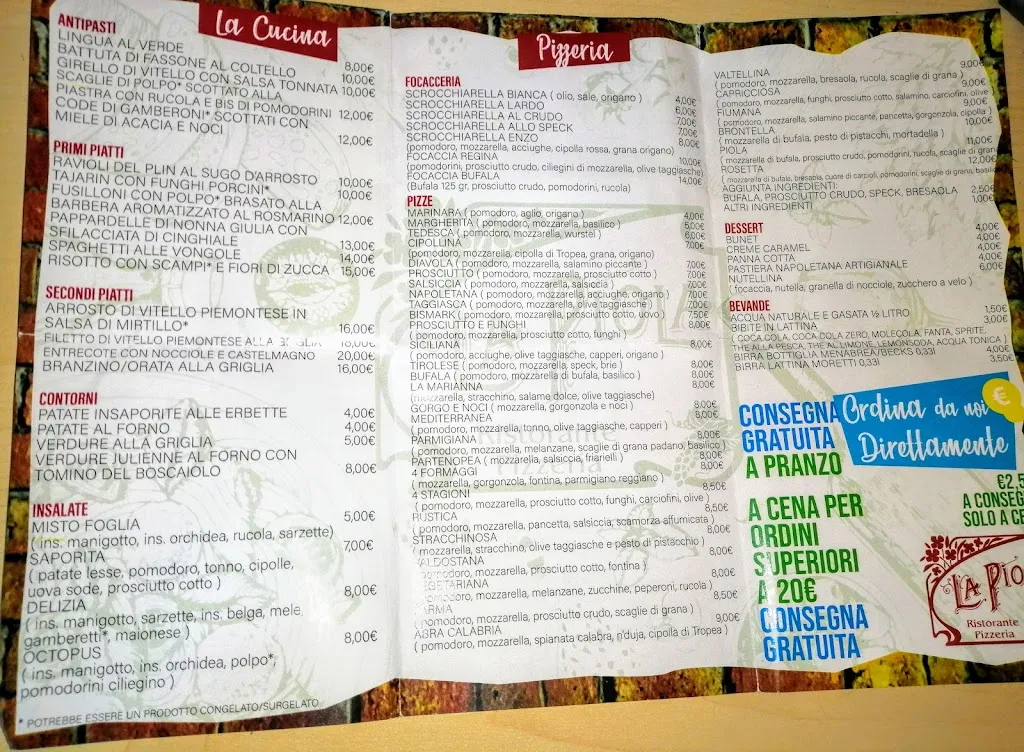 La Cucina
ANTIPASTI
LINGUA AL VERDE 8,00€
BATTUTA DI FASSONE AL COLTELLO 10,00€
GIRELLO DI VITELLO CON SALSA TONNATA 10,00€
SCAGLIE DI POLPO* SCOTTATO ALLA
PIASTRA CON RUCOLA E BIS DI POMODORINI 12,00€
CODE DI GAMBERONI* SCOTTATI CON
MIELE DI ACACIA E NOCI 12,00€
PRIMI PIATTI
RAVIOLI DEL PLIN AL SUGO D'ARROSTO 10,00€
TAJARIN CON FUNGHI PORCINI* 10,00€
FUSILLONI CON POLPO* BRASATO ALLA
BARBERA AROMATIZZATO AL ROSMARINO 12,00€
PAPPARDELLE DI NONNA GIULIA CON
SFILACCIATA DI CINGHIALE 13,00€
SPAGHETTI ALLE VONGOLE 14,00€
RISOTTO CON SCAMPI* E FIORI DI ZUCCA 15,00€
SECONDI PIATTI
ARROSTO DI VITELLO PIEMONTESE IN
SALSA DI MIRTILLO* 16,00€
FILETTO DI VITELLO PIEMONTESE ALLA
ENTRECOTE CON NOCCIOLE E CASTELMAGNO 20,00€
BRANZINO/ORATA ALLA GRIGLIA 16,00€
CONTORNI
PATATE INSAPORITE ALLE ERBETTE 4,00€
PATATE AL FORNO 4,00€
VERDURE ALLA GRIGLIA 5,00€
VERDURE JULIENNE AL FORNO CON
TOMINO DEL BOSCAIOLO 8,00€
INSALATE
MISTO FOGLIA 5,00€
( ins. manigotto, ins. orchidea, rucola, sarzette)
SAPORITA 7,00€
( patate lesse, pomodoro, tonno, cipolle,
uova sode, prosciutto cotto )
DELIZIA 8,00€
( ins. manigotto, sarzette, ins. belga, mele,
gamberetti*, maionese )
OCTOPUS 8,00€
( ins. manigotto, ins. orchidea, polpo*,
pomodorini ciliegino )
* POTREBBE ESSERE UN PRODOTTO CONGELATO/SURGELATO
Pizzeria
FOCACCERIA
SCROCCHIARELLA BIANCA ( olio, sale, origano ) 4,00€
SCROCCHIARELLA LARDO 6,00€
SCROCCHIARELLA AL CRUDO 7,00€
SCROCCHIARELLA ALLO SPECK 7,00€
SCROCCHIARELLA ENZO 8,00€
(pomodoro, mozzarella, acciughe, cipolla rossa, grana origano)
FOCACCIA REGINA 10,00€
(pomodorini, prosciutto crudo, ciliegini di mozzarella, olive taggiasche)
FOCACCIA BUFALA 14,00€
(Bufala 125 gr, prosciutto crudo, pomodorini, rucola)
PIZZE
MARINARA ( pomodoro, aglio, origano ) 4,00€
MARGHERITA ( pomodoro, mozzarella, basilico ) 5,00€
TEDESCA ( pomodoro, mozzarella, wurstel ) 6,00€
CIPOLLINA 7,00€
(pomodoro, mozzarella, cipolla di Tropea, grana, origano)
DIAVOLA ( pomodoro, mozzarella, salamino piccante ) 7,00€
PROSCIUTTO ( pomodoro, mozzarella, prosciutto cotto ) 7,00€
SALSICCIA ( pomodoro, mozzarella, salsiccia ) 7,00€
NAPOLETANA ( pomodoro, mozzarella, acciughe, origano ) 7,00€
TAGGIASCA ( pomodoro, mozzarella, olive taggiasche ) 7,00€
BISMARK ( pomodoro, mozzarella, prosciutto cotto, uovo ) 7,50€
PROSCIUTTO E FUNGHI 8,00€
( pomodoro, mozzarella, prosciutto cotto, funghi )
SICILIANA 8,00€
( pomodoro, acciughe, olive taggiasche, capperi, origano )
TIROLESE ( pomodoro, mozzarella, speck, brie ) 8,00€
BUFALA ( pomodoro, mozzarella di bufala, basilico ) 8,00€
LA MARIANNA 8,00€
(mozzarella, stracchino, salame dolce, olive taggiasche)
GORGO E NOCI ( mozzarella, gorgonzola e noci ) 8,00€
MEDITERRANEA 8,00€
( pomodoro, mozzarella, tonno, olive taggiasche, capperi )
PARMIGIANA 8,00€
( pomodoro, mozzarella, melanzane, scaglie di grana padano, basilico )
PARTENOPEA ( mozzarella, salsiccia, friarielli ) 8,00€
4 FORMAGGI 8,00€
( mozzarella, gorgonzola, fontina, parmigiano reggiano )
4 STAGIONI 8,50€
( pomodoro, mozzarella, prosciutto cotto, funghi, carciofini, olive )
RUSTICA 8,50€
( pomodoro, mozzarella, pancetta, salsiccia, scamorza affumicata )
STRACCHINOSA 8,00€
( mozzarella, stracchino, olive taggiasche e pesto di pistacchio )
VALDOSTANA 8,00€
pomodoro, mozzarella, prosciutto cotto, fontina )
VEGETARIANA 8,00€
pomodoro, mozzarella, melanzane, zucchine, peperoni, rucola )
PARMA 8,50€
pomodoro, mozzarella, prosciutto crudo, scaglie di grana )
ABRA CALABRIA 9,00€
( pomodoro, mozzarella, spianata calabra, n'duja, cipolla di Tropea )
VALTELLINA 9,00€
( pomodoro, mozzarella, bresaola, rucola, scaglie di grana )
CAPRICCIOSA 9,00€
(pomodoro, mozzarella, funghi, prosciutto cotto, salamino, carciofini, olive
FIUMANA 9,00€
( pomodoro, mozzarella, salamino piccante, pancetta, gorgonzola, cipolla )
BRONTELLA 10,00€
( mozzarella di bufala, pesto di pistacchi, mortadella )
PIOLA 11,00€
( mozzarella di bufala, prosciutto crudo, pomodorini, rucola, scaglie di grana)
ROSETTA 12,00€
( mozzarella di bufala, bresaola, cuore di carciofi, pomodorini, scaglie di grana, basilico
AGGIUNTA INGREDIENTI:
BUFALA, PROSCIUTTO CRUDO, SPECK, BRESAOLA 2,50€
ALTRI INGREDIENTI 1,00€
DESSERT
BUNET 4,00€
CREME CARAMEL 4,00€
PANNA COTTA 4,00€
PASTIERA NAPOLETANA ARTIGIANALE
NUTELLINA 6,00€
( focaccia, nutella, granella di nocciole, zucchero a velo )
BEVANDE
ACQUA NATURALE E GASATA ½ LITRO 1,50€
BIBITE IN LATTINA 3,00€
( COCA COLA, COCA COLA ZERO, MOLECOLA, FANTA, SPRITE,
THE ALLA PESCA, THE AL LIMONE, LEMONSODA, ACQUA TONICA )
BIRRA BOTTIGLIA MENABREA/BECKS 0,33l 4,00€
BIRRA LATTINA MORETTI 0,33l 3,50€
CONSEGNA
GRATUITA
A PRANZO
Ordina da noi
Direttamente
€
€2,5
A CONSEG
SOLO A CE
A CENA PER
ORDINI
SUPERIORI
A 20€
CONSEGNA
GRATUITA
LA PIO
Ristorante
Pizzeria